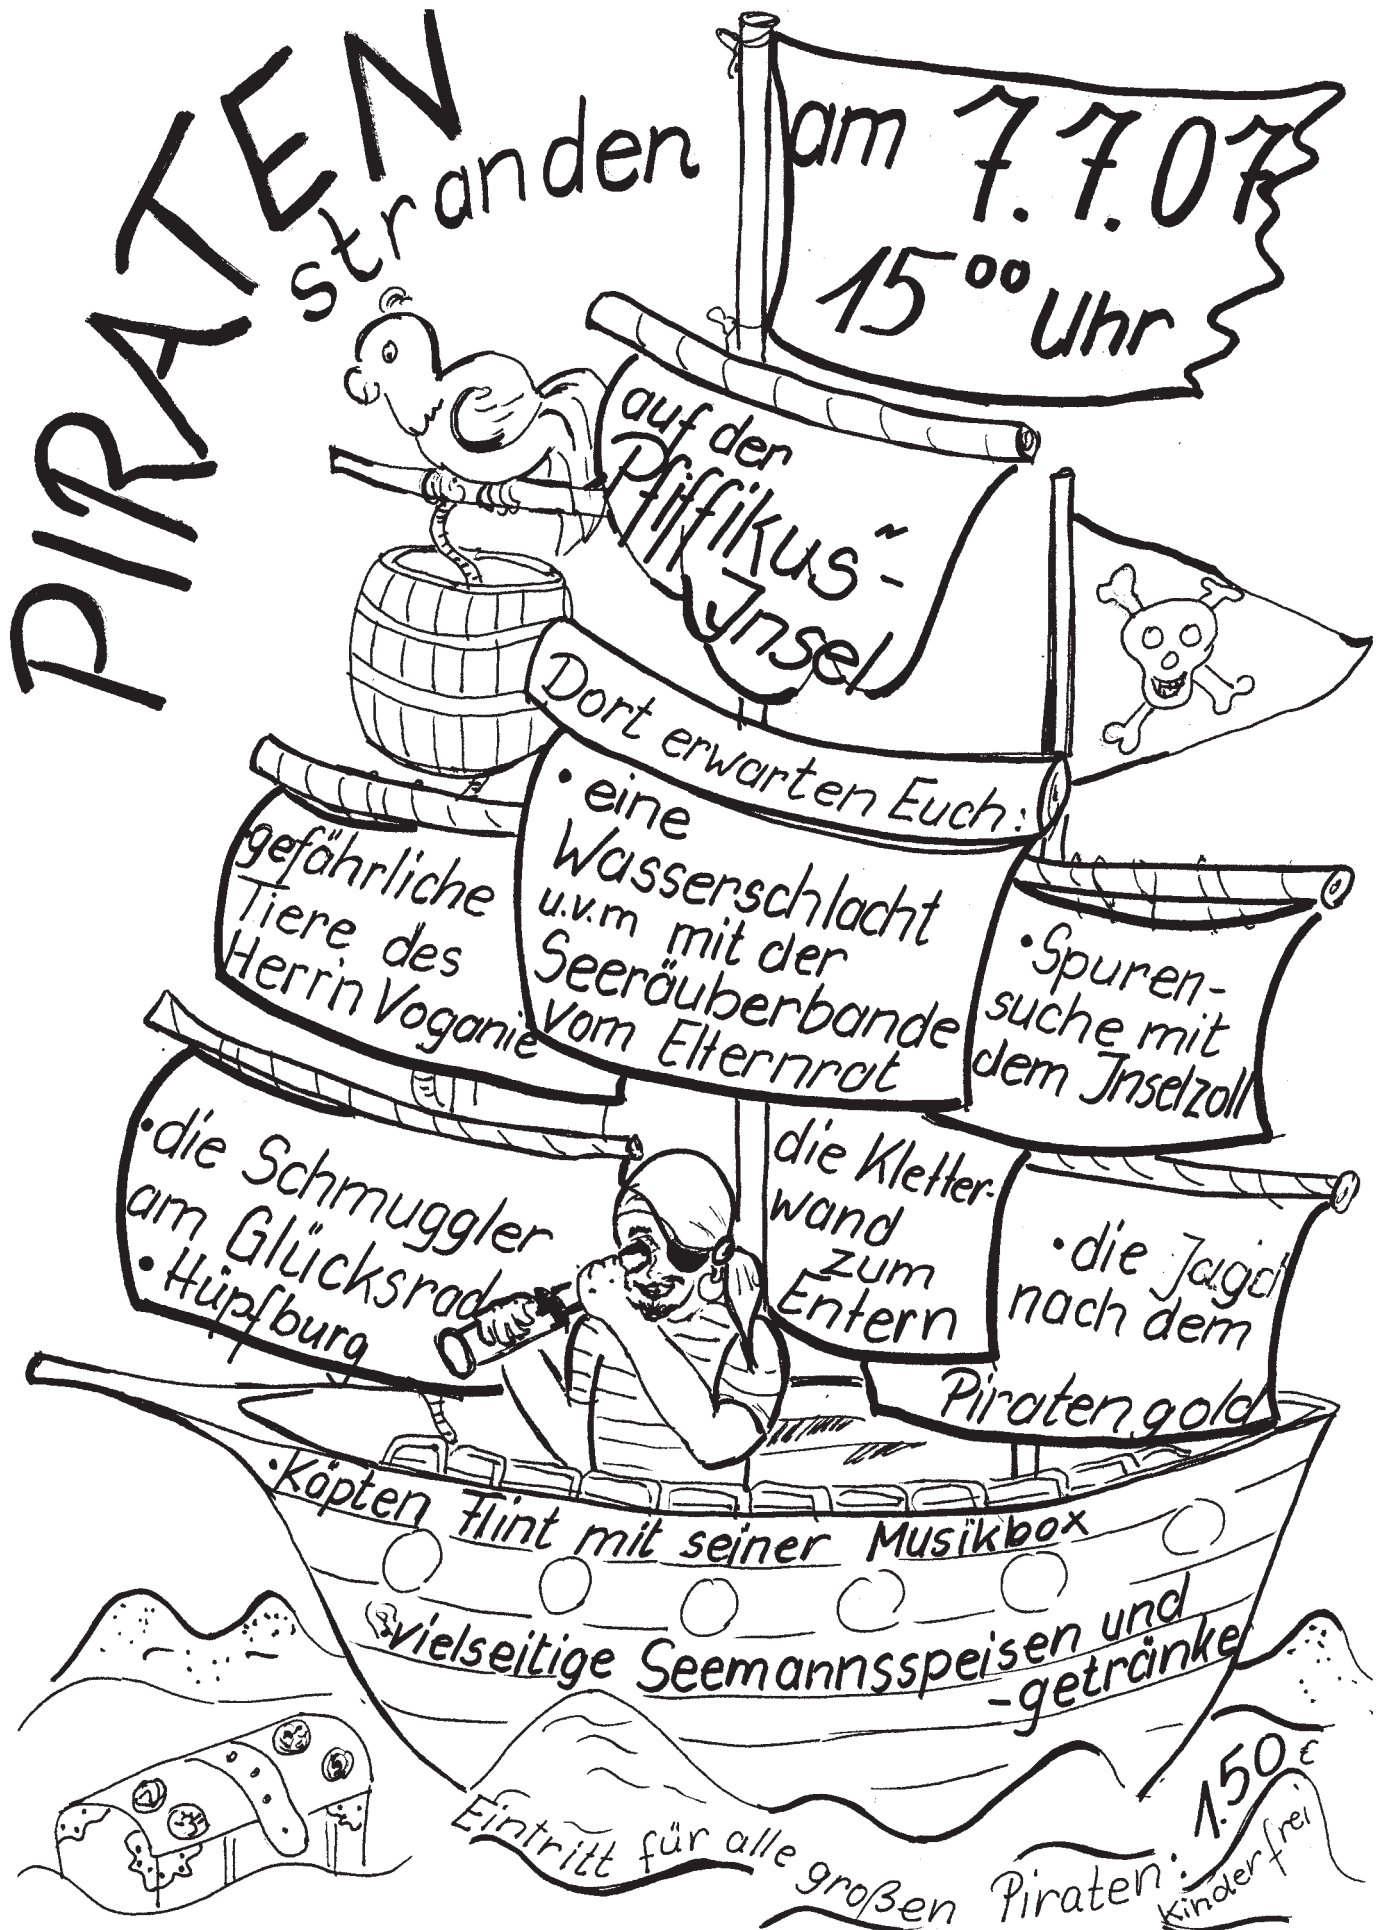 PIRATEN
stranden
am 7.7.07
15⁰⁰ Uhr
auf der
Pfiffikus"-
Jnsel
Dort erwarten Euch:
• eine
Wasserschlacht
u.v.m mit der
Seeräuberbande
vom Elternrat
gefährliche
Tiere des
Herrn Voganie
• Spuren-
suche mit
dem Jnselzoll
• die Schmuggler
am Glücksrad
• Hüpfburg
die Kletter-
wand
zum
Entern
• die Jagd
nach dem
Piratengold
• Käpten Flint mit seiner Musikbox
vielseitige Seemannsspeisen und
-getränke
Eintritt für alle großen Piraten: 1.50 €
Kinder frei